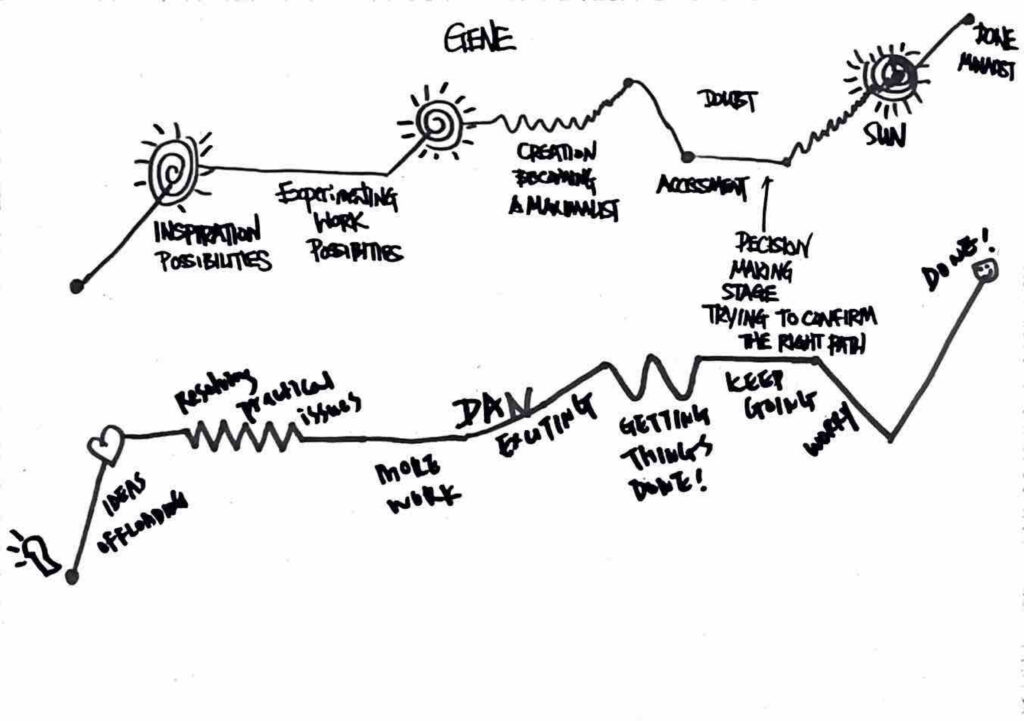 GENE
DONE
MINALIST
DOUBT
SUN
CREATION
BECOMING
A MAXIMALIST
ACCESSMENT
Experimenting
WORK
POSSIBITIES
INSPIRATION
POSSIBILITIES
DECISION
MAKING
STAGE
TRYING TO CONFIRM
THE RIGHT PATH
DONE!
Resolving
practical
issues
DAN
EXCITING
KEEP
GOING
GETTING
THINGS
DONE!
WORRY
MORE
WORK
IDEAS
OFFLOADING